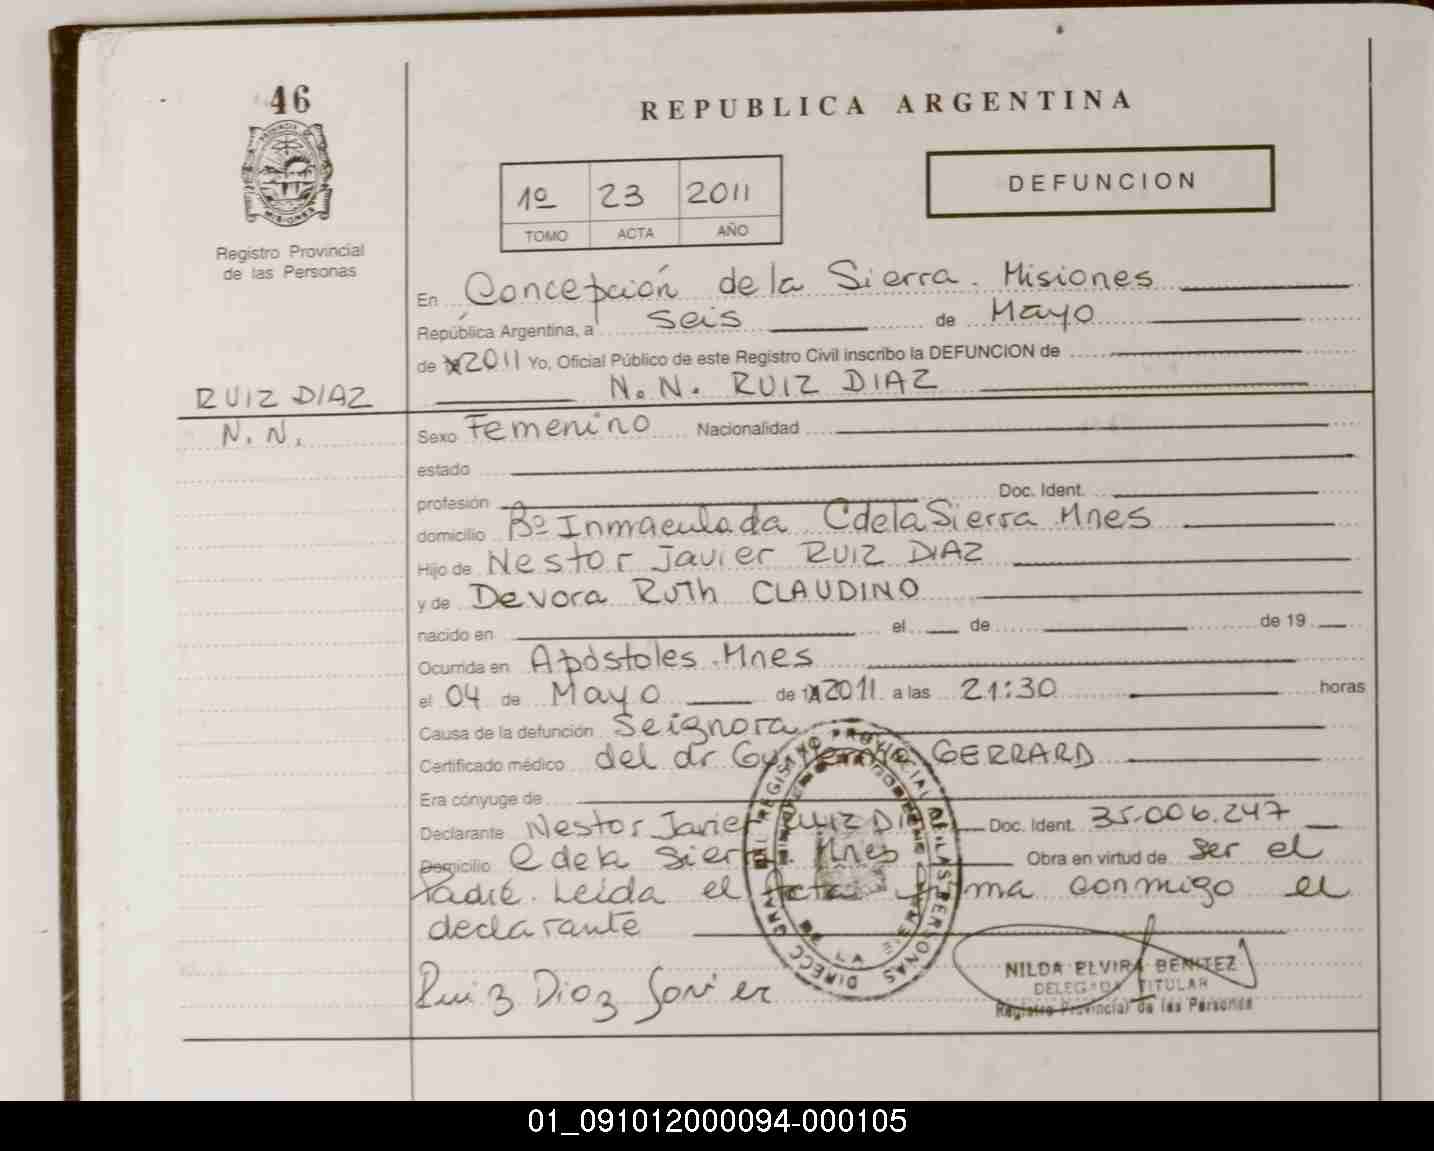 46
REPUBLICA ARGENTINA
1º 23 2011
TOMO ACTA AÑO
DEFUNCION
PROVINCIA
MISIONES
Registro Provincial
de las Personas
En Concepción de la Sierra. Misiones
República Argentina, a Seis de Mayo
de 2011 Yo, Oficial Público de este Registro Civil inscribo la DEFUNCION de
N.N. RUIZ DIAZ
RUIZ DIAZ
N. N.
Sexo Femenino Nacionalidad
estado
profesión Doc. Ident.
domicilio Bº Inmaculada C de la Sierra Mnes
Hijo de Nestor Javier RUIZ DIAZ
y de Devora Ruth CLAUDINO
nacido en el de de 19
Ocurrida en Apóstoles. Mnes
el 04 de Mayo de 2011 a las 21:30 horas
Causa de la defunción Se ignora
Certificado médico del dr GERRARD
Era cónyuge de
Declarante Nestor Javier RUIZ DIAZ Doc. Ident. 35.006.247
Domicilio C de la Sierra. Mnes Obra en virtud de ser el
Padre. Leída el Acta firma conmigo el
declarante
DIRECC GRAL DEL REGISTRO PROVINCIAL DE LAS PERSONAS
DE LA
Ruiz Diaz Javier
NILDA ELVIRA BENITEZ
DELEGADA TITULAR
Registro Provincial de las Personas
01_091012000094-000105